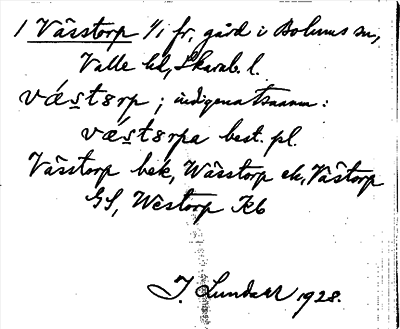 1 Västorp 1/1 fr, gård i Bolums sn,
Valle hd, Skarab. l.
væ̀stɔrp; indigenatsnamn:
væ̀stɔrpa best. pl.
Västorp bek, Wässtorp ek, Västorp
GS, Wèstorp Kb
J. Lundahl 1928.